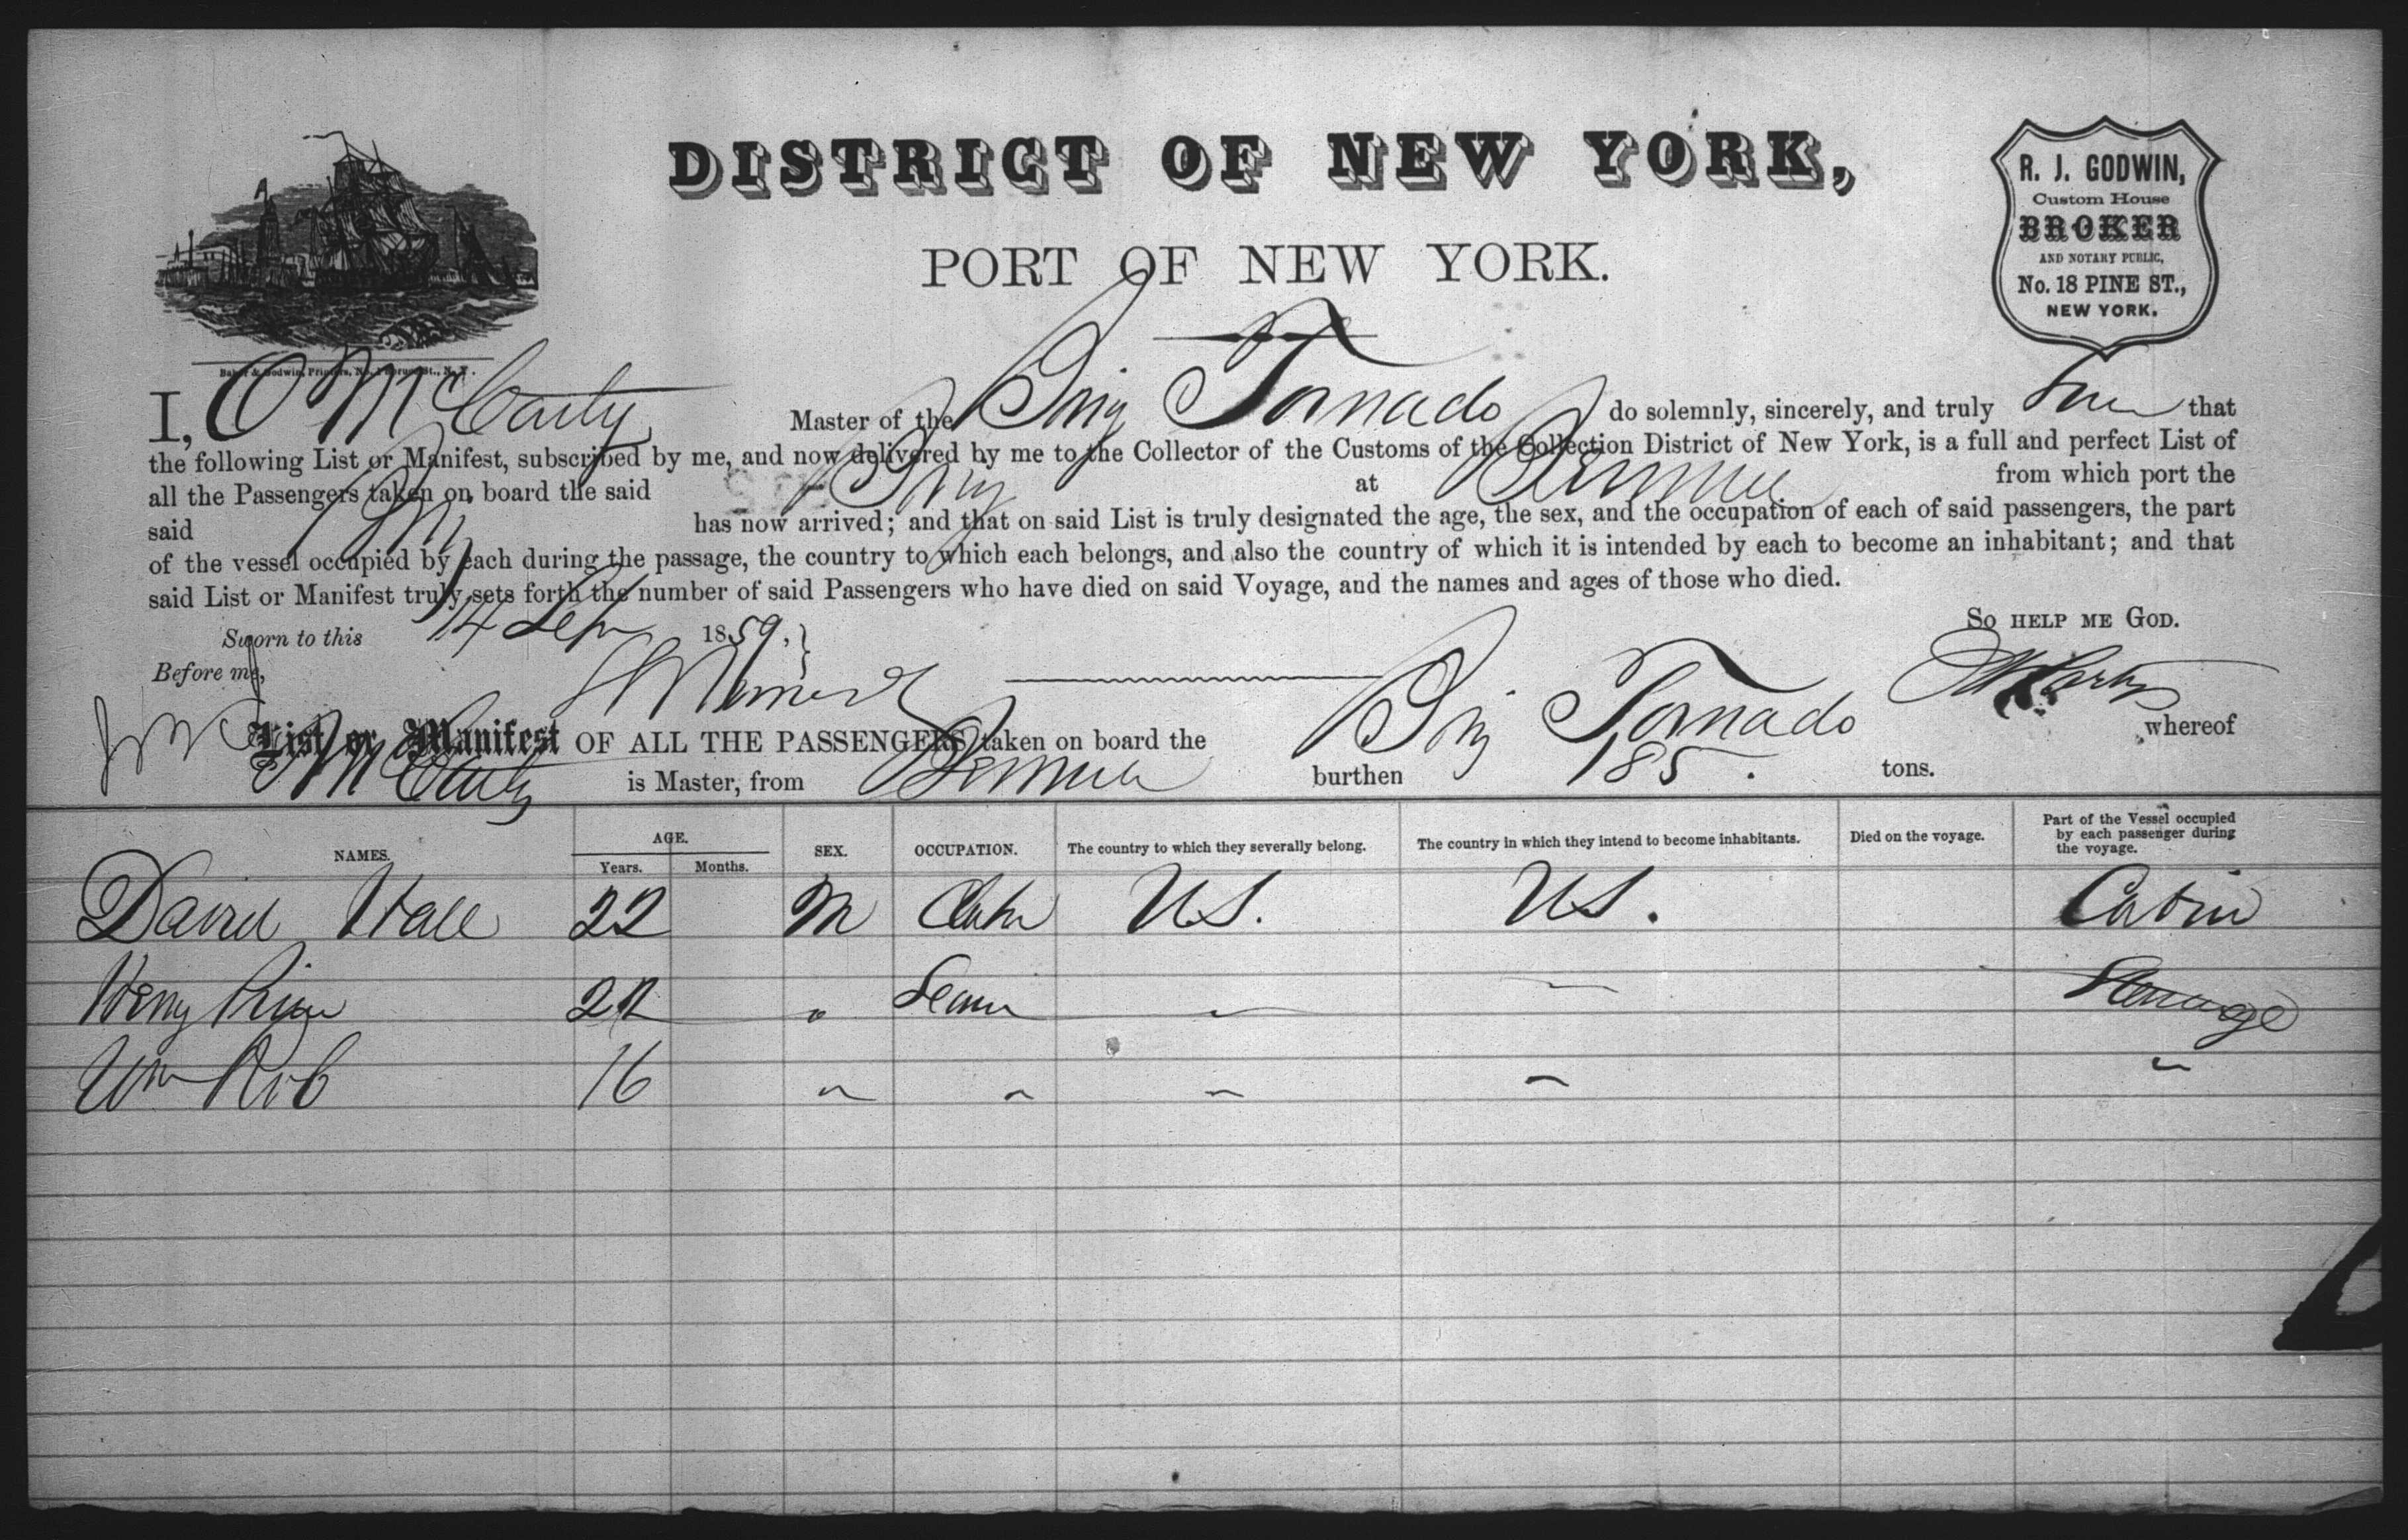 DISTRICT OF NEW YORK,
PORT OF NEW YORK.
R. J. GODWIN,
Custom House
BROKER
AND NOTARY PUBLIC,
No. 18 PINE ST.,
NEW YORK.
Baker & Godwin, Printers, No. 1 Spruce St., N.Y.
I, O McCarty Master of the Brig Tornado do solemnly, sincerely, and truly that
the following List or Manifest, subscribed by me, and now delivered by me to the Collector of the Customs of the Collection District of New York, is a full and perfect List of
all the Passengers taken on board the said Brig at from which port the
said has now arrived; and that on said List is truly designated the age, the sex, and the occupation of each of said passengers, the part
of the vessel occupied by each during the passage, the country to which each belongs, and also the country of which it is intended by each to become an inhabitant; and that
said List or Manifest truly sets forth the number of said Passengers who have died on said Voyage, and the names and ages of those who died.
So HELP ME GOD.
Sworn to this 14 Sep 1859.
Before me,
List or Manifest OF ALL THE PASSENGERS taken on board the Brig Tornado whereof
McCarty is Master, from burthen 185 . tons.
NAMES. AGE. Years. Months. SEX. OCCUPATION. The country to which they severally belong. The country in which they intend to become inhabitants. Died on the voyage. Part of the Vessel occupied by each passenger during the voyage.
David Hall 22 M U S. U S. Cabin
Henry 22 " " " Steerage
Wm 16 " " " " "